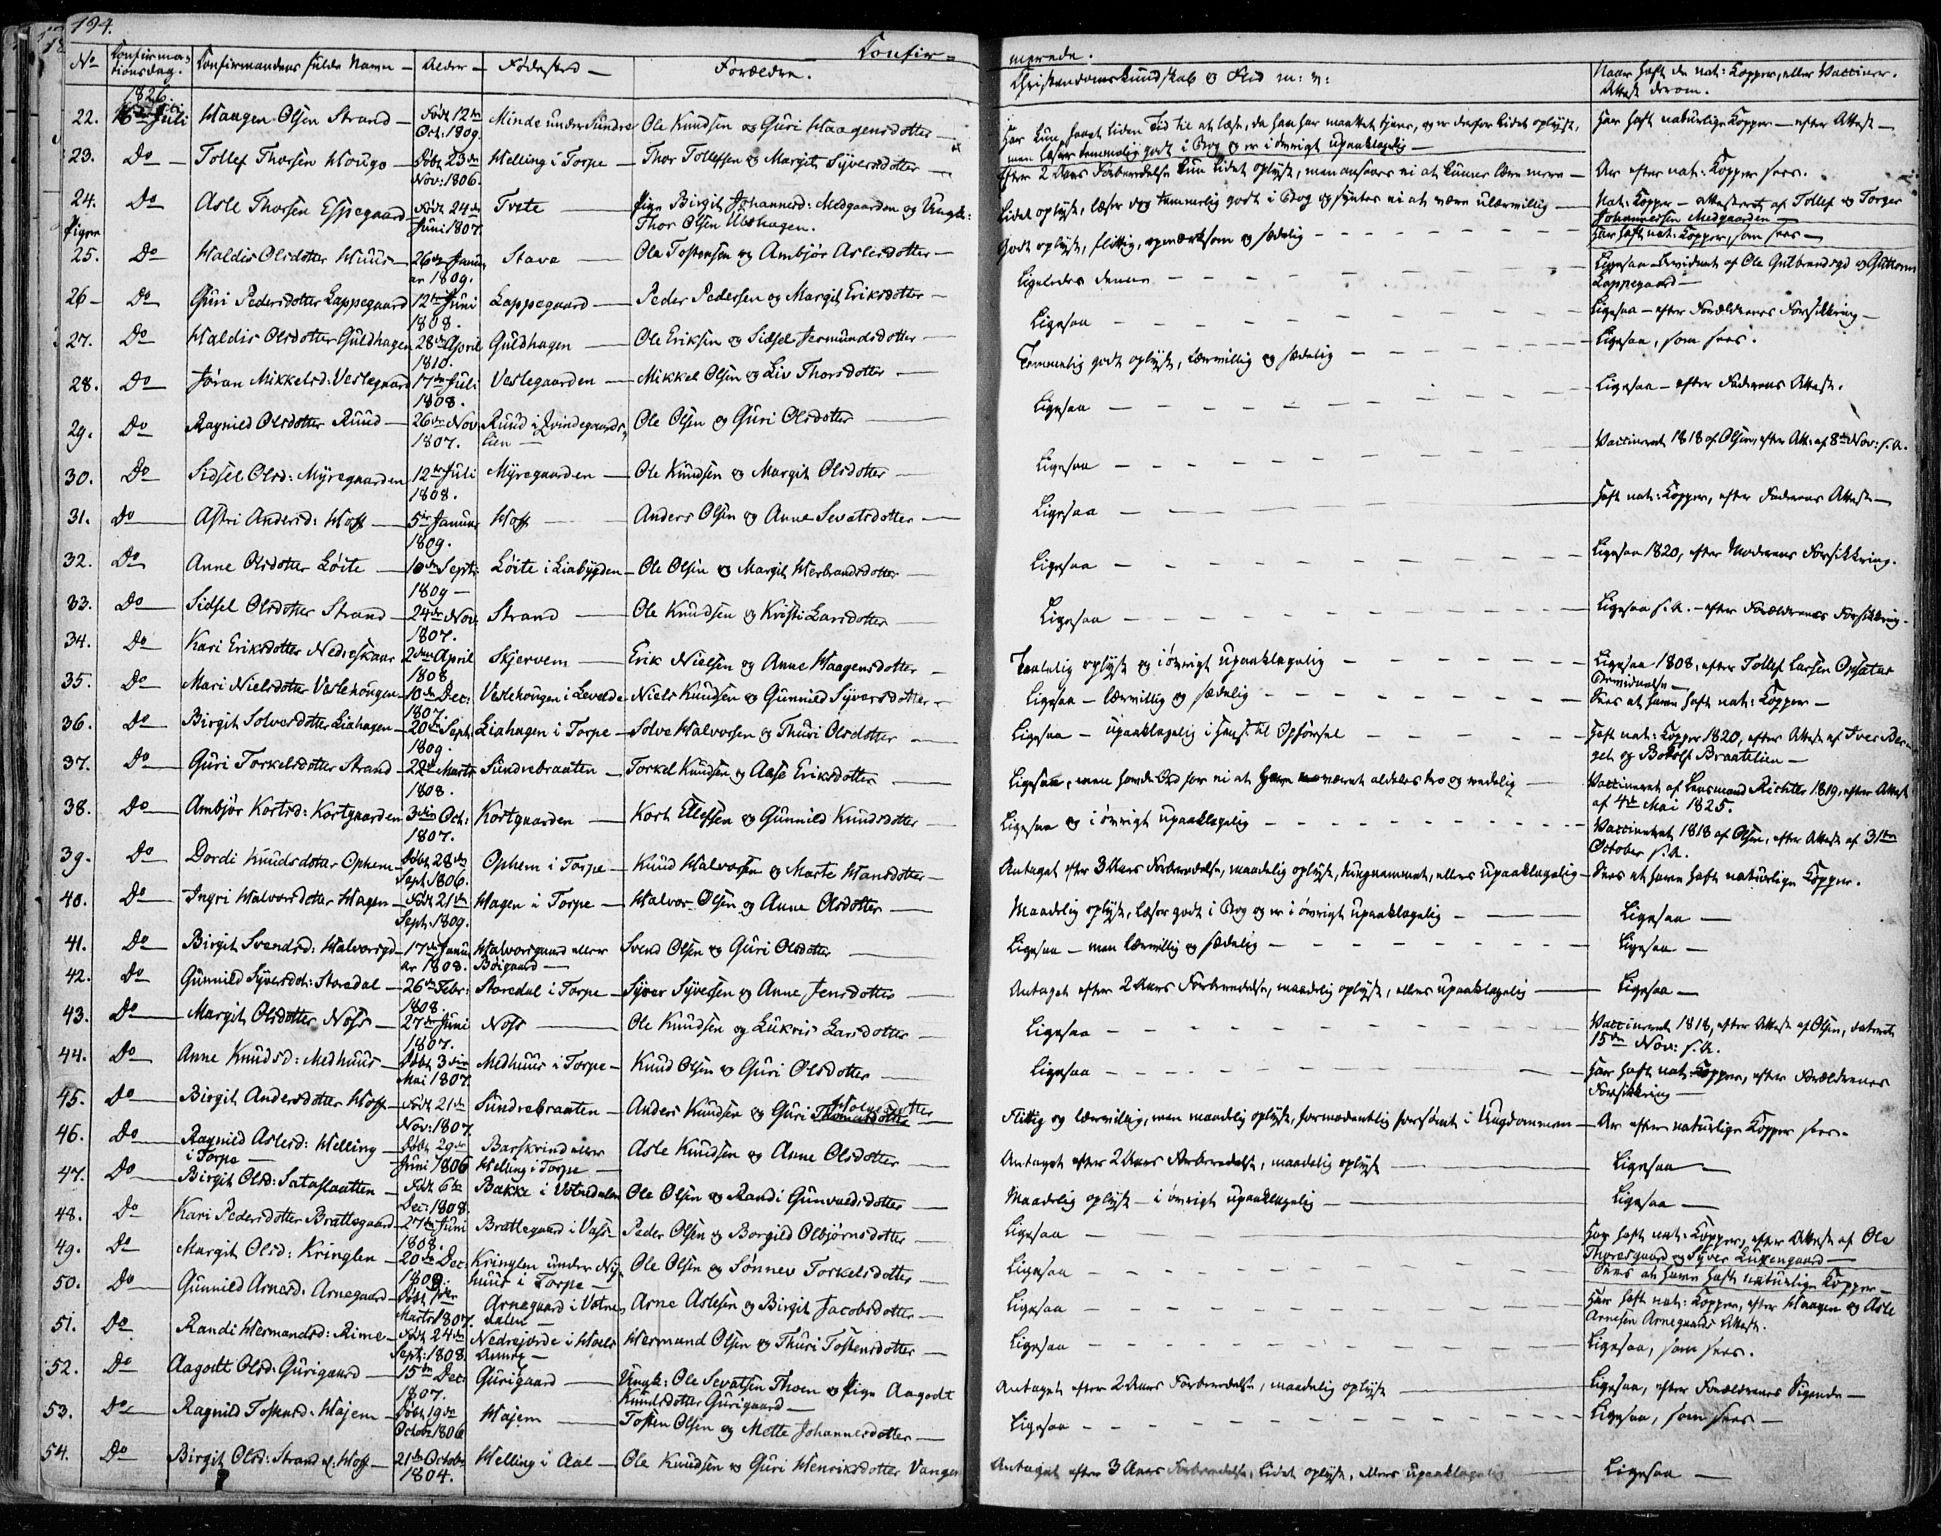 194.
Confir=
merede.
No Confirma-tionsdag. Confirmandens fulde Navn — Alder — Fødested — Forældre. Christendomskundskab og Flid m: v: Naar haft de nat: Kopper, eller Vaccineret. Attest derom.
1826.
22. 16de Juli Haagen Olsen Strand — Født 12te Oct: 1809. Minde under Sundre Ole Knudsen og Guri Haagensdotter — Har kun havt liden Tid til at læse, da han har maattet tjene, og er derfor lidet oplyst, men læser temmelig godt i Bog og er i øvrigt upaaklagelig — Har haft naturlige Kopper — efter Attest —
23. Do — Tollef Thorsen Hougo — Døbt 23de Nov: 1806. Helling i Torpe — Thor Tollefsen og Margit Syversdotter — Efter 2 Aars Forberedelse kun lidet oplyst, men ansaaes ei at kunne lære mere — Ar efter nat: Kopper sees.
24. Do Asle Thorsen Espegaard — Født 24de Juni 1807. Tvete — Pige Birgit Johannesd: Medgaarden og Ungk: Thor Olsen Ulshagen. Lidet oplyst, læser dog temmelig godt i Bog og syntes ei at være ulærvillig — Nat: Kopper — attesteret af Tollef og Torger Johannessen Medgaarden —
Piger
25. Do Haldis Olsdotter Huus — 26de Januar 1809. Stave — Ole Tostensen og Ambjør Aslesdotter — Godt oplyst, flittig, opmærksom og sædelig — Har haft nat: Kopper, som sees —
26 — Do Guri Pedersdotter Lappegaard — 12te Juni 1808. Lappegaard — Peder Pedersen og Margit Eriksdotter — Ligeledes denne — Ligesaa — bevidnet af Ole Gulbrandsgd og Guttorm Lappegaard —
27. Do Haldis Olsdotter Guldhagen 28de April 1810. Guldhagen — Ole Eriksen og Sidsel Jermundsdotter — Ligesaa — Ligesaa — efter Forældrenes Forsikkring —
28. Do Jøran Mikkelsd: Vestegaard 17de Juli 1808. Vestegaarden — Mikkel Olsen og Liv Thorsdotter — Temmelig godt oplyst, lærvillig og sædelig — Ligesaa, som sees.
29. Do Ragnild Olsdotter Ruud — 26de Nov 1807. Ruud i Qvindegaardslien — Ole Olsen og Guri Olsdotter — Ligesaa — Ligesaa — efter Faderens Attest.
30. Do Sidsel Olsd: Myregaarden 12te Juli 1808. Myregaarden — Ole Knudsen og Margit Olsdotter — Ligesaa — Vaccineret 1818 af Olsen, efter Att: af 8de Nov: s. A.
31. Do Astri Andersd: Hoff — 5te Januar 1809. Hoff — Anders Olsen og Anne Sevatsdotter — Ligesaa — Haft nat: Kopper, efter Faderens Attest —
32. Do Anne Olsdotter Løite — 10de Sept: 1809 — Løite i Liabygden — Ole Olsen og Margit Herbrandsdotter — Ligesaa — Ligesaa 1820, efter Moderens Forsikkring.
33. Do Sidsel Olsdotter Strand — 24de Nov 1807. Strand — Ole Knudsen og Kristi Larsdotter — Ligesaa — Ligesaa s. A. — efter Forældrenes Forsikkring.
34. Do Kari Eriksdotter Nedreskaar 2den April 1808 Skjervem — Erik Nielsen og Anne Haagensdotter — Taalelig oplyst og i øvrigt upaaklagelig — Ligesaa 1808, efter Tollef Larsen Opsatas Bevidnelse —
35. Do Mari Nielsdotter Vestehougen — 10de Dec: 1807. Vestehougen i Levelde Niels Knudsen og Gunnild Syversdotter — Ligesaa — lærvillig og sædelig — Sees at have haft nat: Kopper —
36. Do Birgit Solvesdotter Liahagen — 20de Sept: 1809. Liahagen i Torpe — Solve Halvorsen og Thuri Olsdotter — Ligesaa — upaaklagelig i Hens. til Opførsel — Haft nat: Kopper 1820, efter Attest af Iver Berget og Botolf Braatelien —
37. Do Guri Torkelsdotter Strand — 22de Marts 1808. Sundrebraaten — Torkel Knudsen og Aase Eriksdotter — Ligesaa, men havde Ord for ei at have været aldeles tro og redelig — Vaccineret af Lensmand Richter 1819, efter Attest af 4de Mai 1825.
38. Do Ambjør Kortsd: Kortgaarden 3die Oct: 1807. Kortgaarden — Kort Ellefsen og Gunnild Knudsdotter — Ligesaa og i øvrigt upaaklagelig — Vaccineret 1818 af Olsen, efter Attest af 31te October s. A.
39. Do Dordi Knudsdotter Ophem — Døbt 28de Sept: 1806. Ophem i Torpe — Knud Halvorsen og Marte Hansdotter — Antaget efter 3 Aars Forberedelse, maadelig oplyst, tungnemmet, ellers upaaklagelig — Sees at have haft naturlige Kopper.
40. Do Ingri Halvorsdotter Hagen — Født 21de Sept: 1809. Hagen i Torpe — Halvor Olsen og Anne Olsdotter — Maadelig oplyst, læser godt i Bog og er i øvrigt upaaklagelig — Ligesaa —
41. Do Birgit Svendsd: Halvorsgd — 17de Januar 1808. Halvorsgaard eller Bøigaard — Svend Olsen og Guri Olsdotter — Ligesaa — men lærvillig og sædelig — Ligesaa —
42. Do Gunnild Syversdot: Storedal — 26de Febr: 1808. Storedal i Torpe — Syver Syversen og Anne Jensdotter — Antaget efter 2 Aars Forberedelse, maadelig oplyst, ellers upaaklagelig — Ligesaa —
43. Do — Margit Olsdotter Noss — 27de Juni 1807. Noss — Ole Knudsen og Lukris Larsdotter — Ligesaa — Vaccineret 1818, efter Attest af Olsen, dateret 15de Nov: s. A.
44. Do — Anne Knudsd: Medhuus — Døbt 3die Mai 1807. Medhuus i Torpe — Knud Olsen og Guri Olsdotter — Ligesaa — Har haft nat: Kopper, efter Forældrenes Forsikkring —
45. Do — Birgit Andersdotter Hoff — Født 21de Nov: 1807. Sundrebraaten — Anders Knudsen og Guri Flittig og lærvillig, men maadelig oplyst, formodentlig forsømt i Ungdommen — Ar efter naturlige Kopper sees.
46. Do Ragnild Aslesd: Helling i Torpe — Døbt 29de Juni 1806. Barskrind eller Helling i Torpe — Asle Knudsen og Anne Olsdotter — Antaget efter 2 Aars Forberedelse, maadelig oplyst — Ligesaa —
47. Do Birgit Olsd: Sataslaatten — Født 6te Dec: 1808. Bakke i Votnedalen Ole Olsen og Randi Gunvaldsdotter — Maadelig oplyst — i øvrigt upaaklagelig — Ligesaa —
48. Do Kari Pedersdotter Brattegaard — 27de Juni 1808. Brattegaard i Vats — Peder Olsen og Borgild Olbjørnsdotter — Ligesaa — Har haft nat: Kopper, efter Attest af Ole Thoresgaard og Syver Lukengaard —
49. Do Margit Olsd: Kringlen — 20de Dec: 1808. Kringlen under Nyhuus i Torpe — Ole Olsen og Sønnev Torkelsdotter — Ligesaa — Sees at have haft naturlige Kopper —
50. Do Gunnild Arnesd: Arnegaard — Døbt Marts 1807. Arnegaard i Votnedalen — Arne Aslesen og Birgit Jacobsdotter — Ligesaa — Har haft nat: Kopper, efter Haagen og Asle Arnesen Arnegaards Attest.
51. Do Randi Hermandsd: Rime — Født 24de Sept: 1808. Nedrejorde i — Hermand Olsen og Thuri Tostensdotter — Ligesaa — Ligesaa, som sees.
52. Do Aagodt Olsd: Gurigaard — 15de Dec: 1807. Gurigaard — Ungk: Ole Sevatsen Thoen og Pige Aagodt Knudsdotter Gurigaard — Antaget efter 2 Aars Forberedelse, maadelig oplyst — Ligesaa, efter Forældrenes Sigende —
53. Do Ragnild Tostensd: Hajem — Døbt 19de Octobr 1806 Hajem — Tosten Olsen og Mette Johannesdotter — Ligesaa — Ligesaa, som sees —
54. Do Birgit Olsd: Strand el: Hoff — 21de Octobr 1804. Helling i Aal — Ole Knudsen og Guri Henriksdotter Vangen Antaget efter 3 Aars Forberedelse, lidet oplyst, ellers upaaklagelig — Ligesaa —